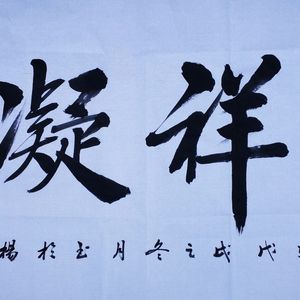 祥凝
戊戌之冬月玉於楊